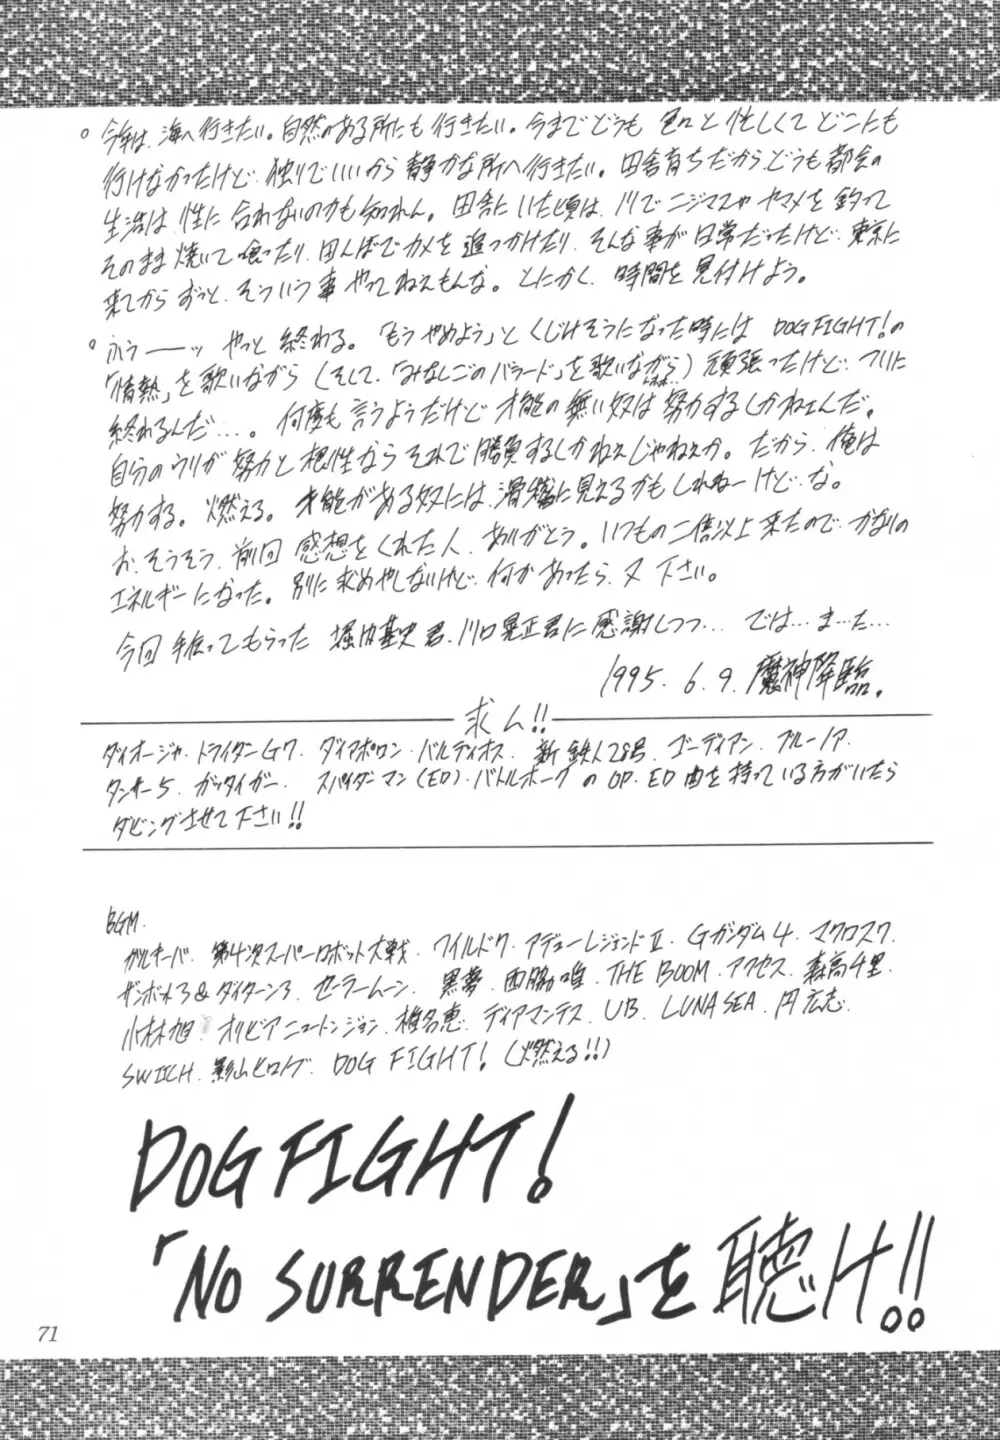 。今年は、海へ行きたい。自然のある所にも行きたい。今までどうも色々と忙しくてどこにも
行けなかったけど、独りでいいから静かな所へ行きたい。田舎育ちだから、どうも都会の
生活は性に合わないのかも知れん。田舎にいた頃は、川でニジマスやヤマメを釣って
そのまま焼いて喰ったり、田んぼでカメを追っかけたり、そんな事が日常だったけど、東京に
来てからずっと、そういう事やってねえもんな。とにかく、時間を見付けよう。
。ふうーーッ やっと終わる。「もうやめよう」とくじけそうになった時には DOG FIGHT!の
「情熱」を歌いながら(そして、「みなしごのバラード」を歌いながら)頑張ったけど、ついに
終わるんだ…。何度も言うようだけど才能の無い奴は努力するしかねェんだ。
自分のウリが努力と根性ならそれで勝負するしかねえじゃねえか。だから、俺は
努力する。燃える。才能がある奴には、滑稽に見えるかもしれねーけど、な。
お、そうそう、前回感想をくれた人、ありがとう。いつもの二倍以上来たので、かなりの
エネルギーになった。別に求めやしないけど、何かあったら、又下さい。
今回手伝ってもらった 堀内基史君、川口晃正君に感謝しつつ… では…ま…た…
1995. 6. 9. 魔神降臨.
求ム!!
ダイオージャ、トライダーG7、ダイアポロン、バルディオス、新鉄人28号、ゴーディアン、ブルーノア、
タンサー5、ガッタイガー、スパイダーマン(ED)、バトルホークのOP、ED曲を持っている方がいたら
ダビングさせて下さい!!
BGM.
ガルキーバ、第4次スーパーロボット大戦、ワイルド7、アデューレジェンドII、Gガンダム4、マクロス7、
ザンボット3&ダイターン3、セーラームーン、黒夢、西脇唯、THE BOOM、アクセス、森高千里、
小林旭、オリビアニュートンジョン、椎名恵、ディアマンテス、UB、LUNA SEA、円広志、
SWITCH、影山ヒロノブ、DOG FIGHT!(燃える!!)
DOG FIGHT!
「NO SURRENDER」を聴け!!
71